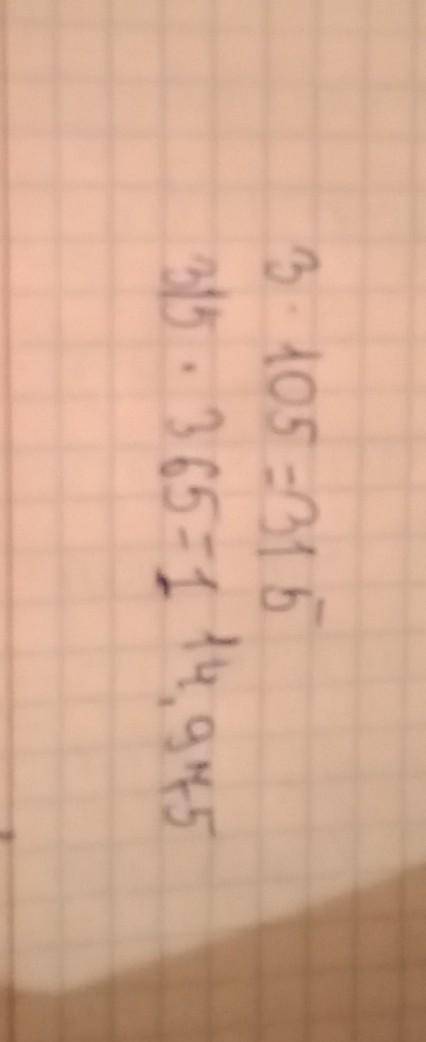 3 · 105 = 315
315 · 365 = 114,975